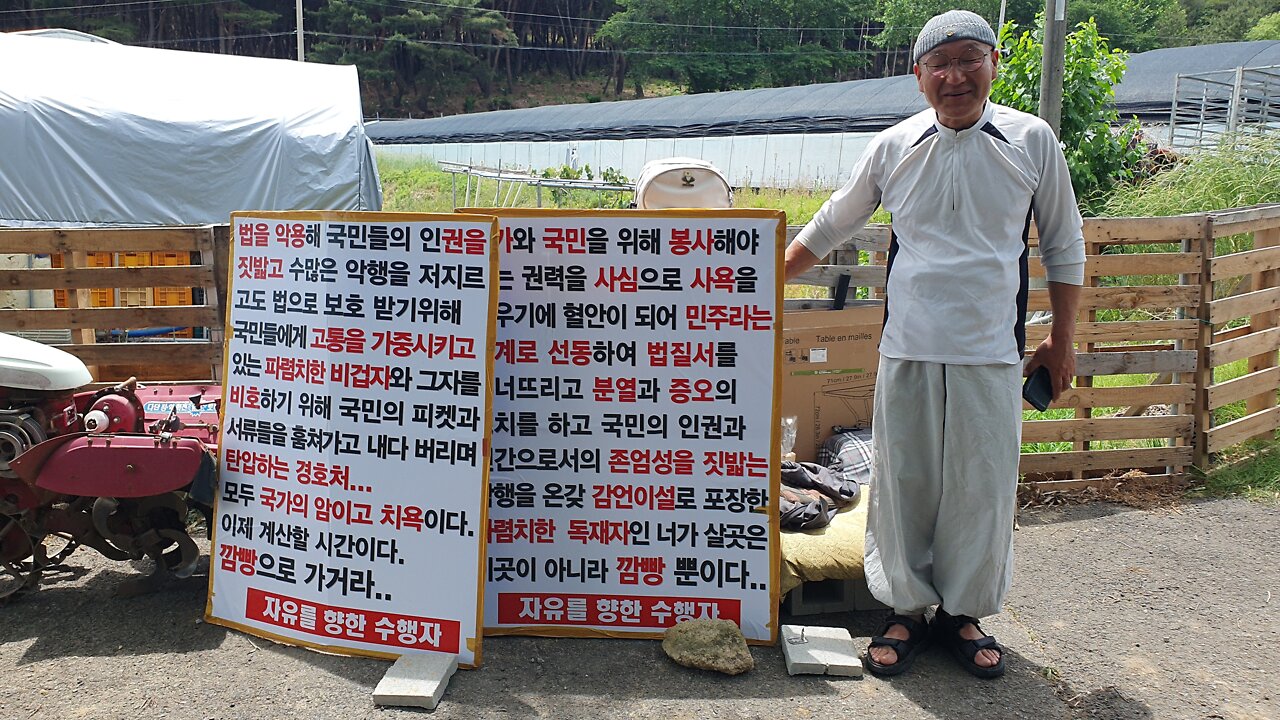 법을 악용해 국민들의 인권을
짓밟고 수많은 악행을 저지르
고도 법으로 보호 받기위해
국민들에게 고통을 가중시키고
있는 파렴치한 비겁자와 그자를
비호하기 위해 국민의 피켓과
서류들을 훔쳐가고 내다 버리며
탄압하는 경호처...
모두 국가의 암이고 치욕이다.
이제 계산할 시간이다.
깜빵으로 가거라..
자유를 향한 수행자
가와 국민을 위해 봉사해야
는 권력을 사심으로 사욕을
우기에 혈안이 되어 민주라는
계로 선동하여 법질서를
너뜨리고 분열과 증오의
치를 하고 국민의 인권과
간으로서의 존엄성을 짓밟는
행을 온갖 감언이설로 포장한
렴치한 독재자인 너가 살곳은
곳이 아니라 깜빵 뿐이다..
자유를 향한 수행자
Table en